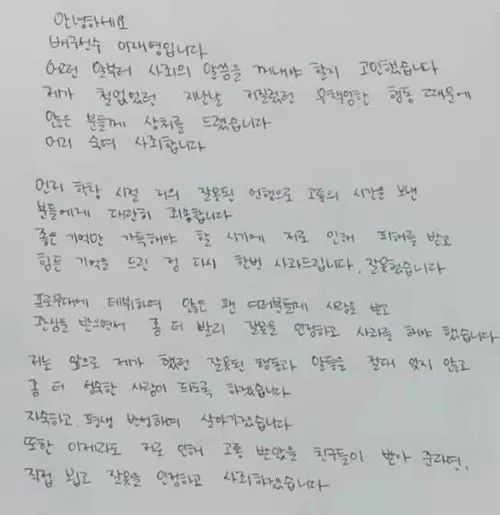 안녕하세요
배구선수 이재영입니다
어떤 말부터 사죄의 말씀을 꺼내야 할지 고민했습니다
제가 철없었던 지난날 저질렀던 무책임한 행동 때문에
많은 분들께 상처를 드렸습니다
머리 숙여 사죄합니다
먼저 학창 시절 저의 잘못된 언행으로 고통의 시간을 보낸
분들에게 대단히 죄송합니다
좋은 기억만 가득해야 할 시기에 저로 인해 피해를 받고
힘든 기억을 드린 점 다시 한번 사과드립니다. 잘못했습니다
프로무대에 데뷔하여 많은 팬 여러분들께 사랑을 받고
관심을 받으면서 좀 더 빨리 잘못을 인정하고 사과를 해야 했습니다
저는 앞으로 제가 했던 잘못된 행동과 말들을 절대 잊지 않고
좀 더 성숙한 사람이 되도록 하겠습니다
자숙하고. 평생 반성하며 살아가겠습니다
또한 이제라도 저로 인해 고통 받았을 친구들이 받아 준다면,
직접 뵙고 잘못을 인정하고 사죄하겠습니다